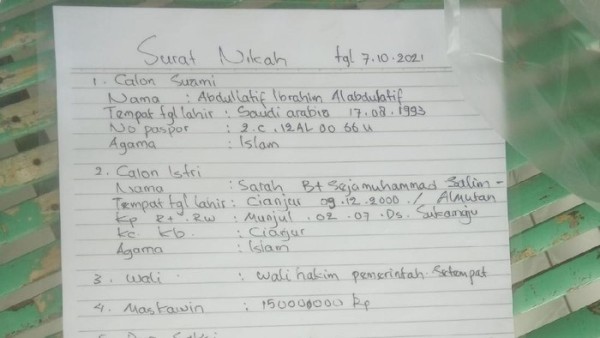 Surat Nikah tgl 7.10.2021
1. Calon Suami
Nama : Abdullatif Ibrahim Alabdulatif
Tempat tgl lahir : Saudi arabia 17.08.1993
No paspor : 2.C.12AL 00 66 U
Agama : Islam
2. Calon Istri
Nama : Sarah Bt Sejamuhammad Salim -
Tempat tgl lahir : Cianjur 09.12.2000 / Almutan
Kp Rt. Rw : Munjul . 02 . 07 . Ds.
Kc Kb. : Cianjur
Agama : Islam
3. Wali : Wali hakim pemerintah setempat
4. Maskawin : 15000000 Rp